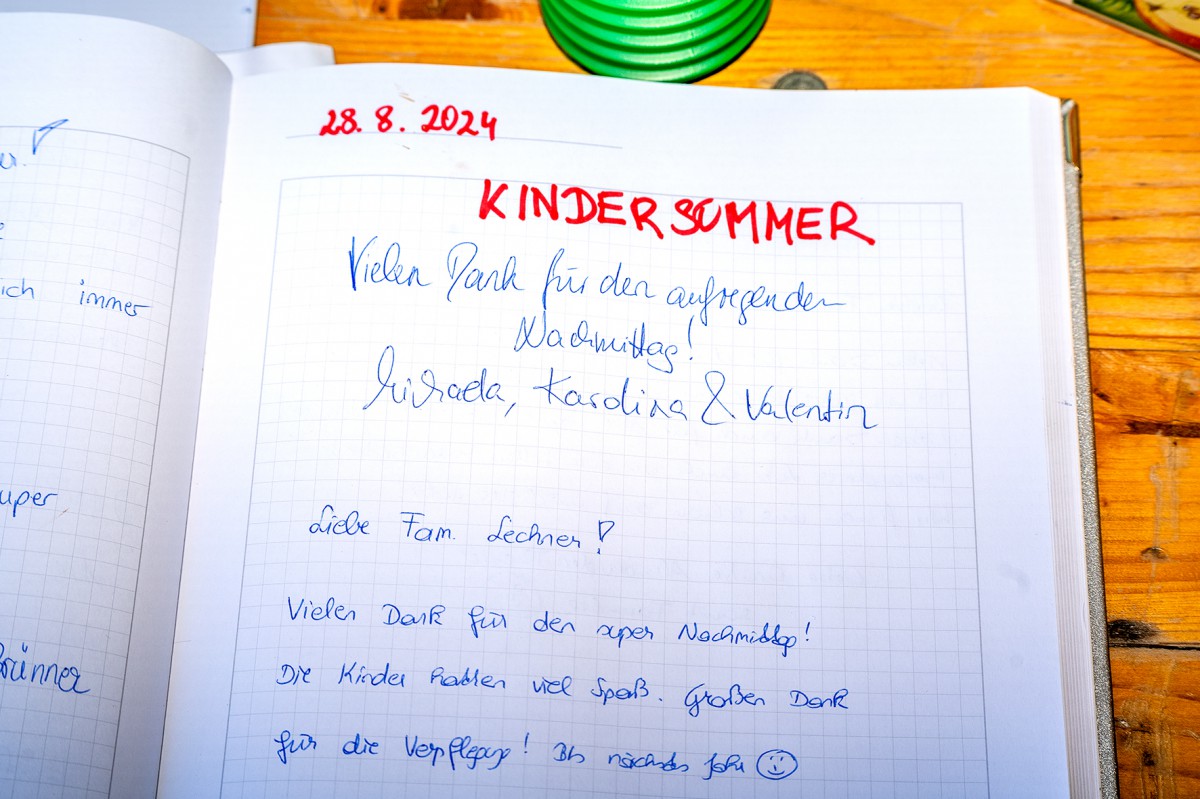 ich immer
super,
Brünner
28. 8. 2024
KINDERSOMMER
Vielen Dank für den aufregenden
Nachmittag!
Karolina & Valentin
Liebe Fam. Lechner!
Vielen Dank für den super Nachmittag!
Die Kinder hatten viel Spaß. Großen Dank
für die Verpflegung! Bis nächstes Jahr ☺